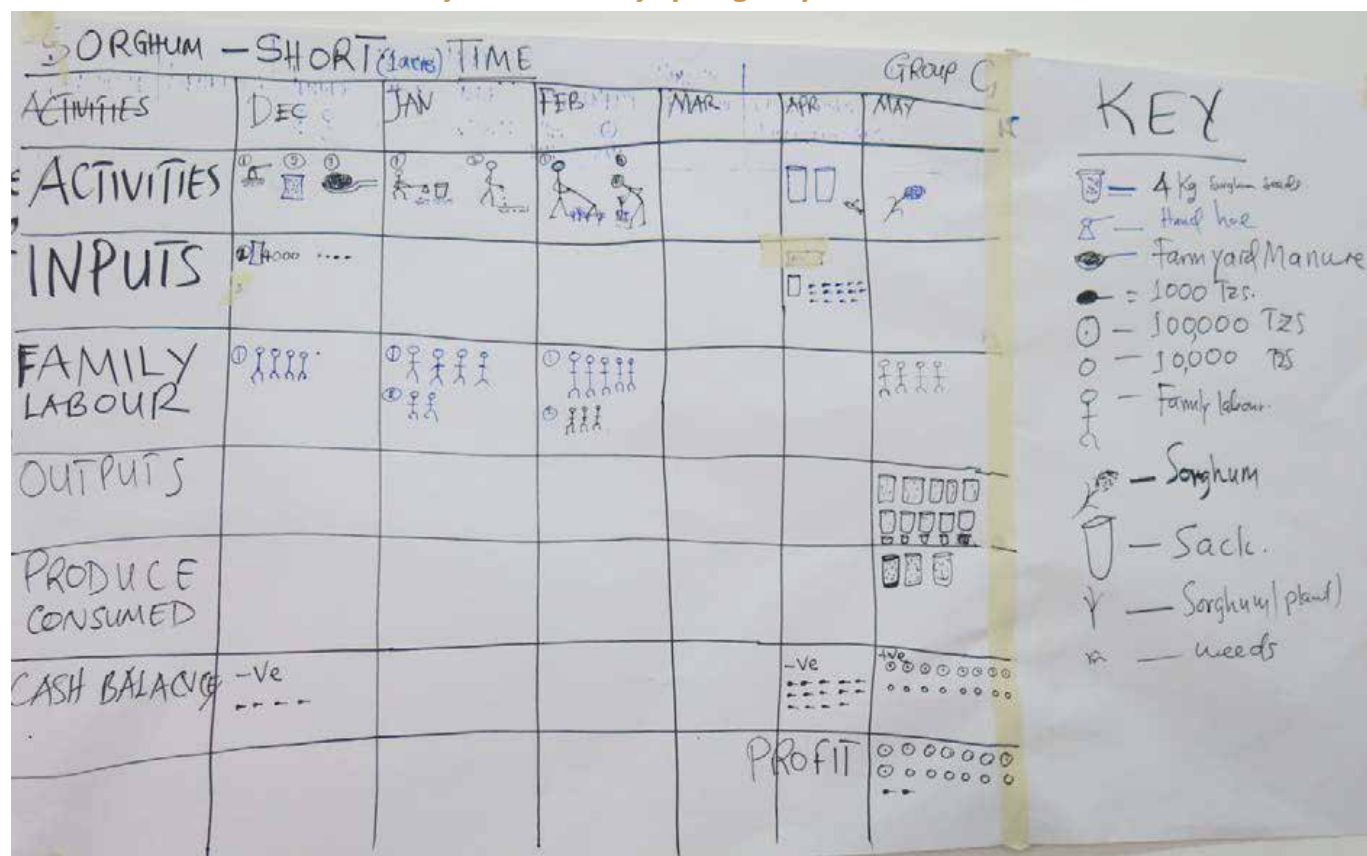 SORGHUM – SHORT (1 acre) TIME
GROUP C
ACTIVITIES DEC JAN FEB MAR APR MAY
ACTIVITIES ① ② ③ ① ② ① ②
INPUTS ② 4000
FAMILY LABOUR ① ① ② ① ②
OUTPUTS
PRODUCE CONSUMED
CASH BALANCE -Ve -Ve +ve
PROFIT
KEY
= 4 Kg Sorghum Seeds
— Hand hoe
— Farm yard Manure
= 1000 Tzs.
— 100,000 TZS
— 10,000 TZS
— Family labour.
— Sorghum
— Sack.
— Sorghum (plant)
— weeds